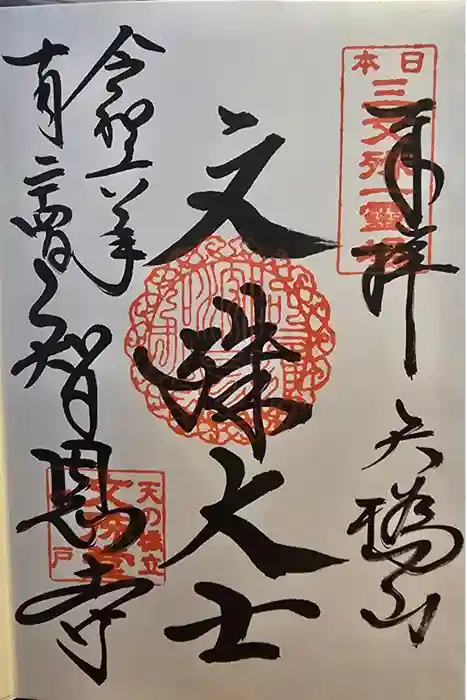 奉拝
天橋山
日本三文殊一霊場
文殊大士
令和六年
十月二十四日
智恩寺
天の橋立
文殊堂